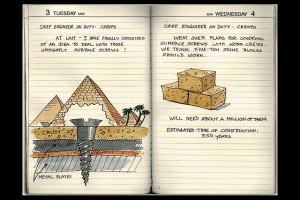 3 TUESDAY MAY
CHIEF ENGINEER ON DUTY: CHEOPS
AT LAST - I HAVE FINALLY CONCEIVED
OF AN IDEA TO DEAL WITH THOSE
UNSIGHTLY SURFACE SCREWS!
CRUST OF
METAL PLATES
MAY WEDNESDAY 4
CHIEF ENGINEER ON DUTY: CHEOPS
WENT OVER PLANS FOR COVERING
SURFACE SCREWS WITH WORK CREWS.
WE THINK FIVE-TON STONE BLOCKS
SHOULD WORK.
WILL NEED ABOUT A MILLION OF THEM
ESTIMATED TIME OF CONSTRUCTION:
350 YEARS